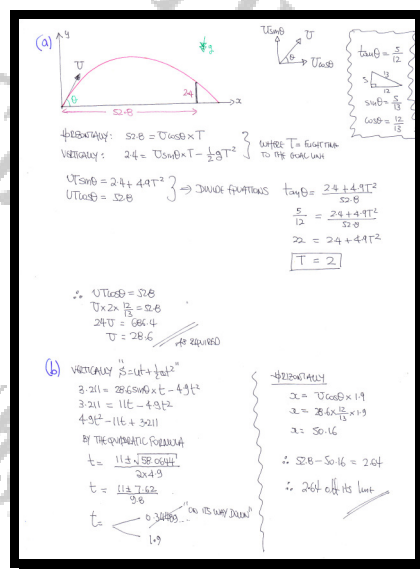 (a)
y
U
θ
g
2.4
x
52.8
Usinθ
U
θ
Ucosθ
tanθ = 5/12
13
5
12
sinθ = 5/13
cosθ = 12/13
HORIZONTALLY: 52.8 = Ucosθ × T
VERTICALLY: 2.4 = Usinθ × T − ½gT²
WHERE T = FLIGHT TIME
TO THE GOAL LINE
UTsinθ = 2.4 + 4.9T²
UTcosθ = 52.8
⇒ DIVIDE EQUATIONS
tanθ = (2.4 + 4.9T²)/52.8
5/12 = (2.4 + 4.9T²)/52.8
22 = 2.4 + 4.9T²
T = 2
∴ UTcosθ = 52.8
U × 2 × 12/13 = 52.8
24U = 686.4
U = 28.6
AS REQUIRED
(b) VERTICALLY "S = ut + ½at²"
3.211 = 28.6sinθ × t − 4.9t²
3.211 = 11t − 4.9t²
4.9t² − 11t + 3.211
BY THE QUADRATIC FORMULA
t = (11 ± √58.0644)/(2×4.9)
t = (11 ± 7.62)/9.8
t = 0.34489...
1.9
"ON ITS WAY DOWN"
HORIZONTALLY
x = Ucosθ × 1.9
x = 28.6 × 12/13 × 1.9
x = 50.16
∴ 52.8 − 50.16 = 2.64
∴ 2.64 off its line